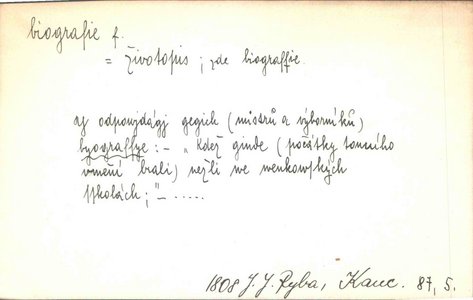 biografie f.
= životopis ; zde biograffie.
aj odpowjdágj gegich (mistrů a výborníků)
byograffye : – „ Kdež ginde (počátky tonního
vmění brali) nežli we wenkowských
sskolách ; "– .....
1808 J. J. Ryba, Kanc. 87, 5.